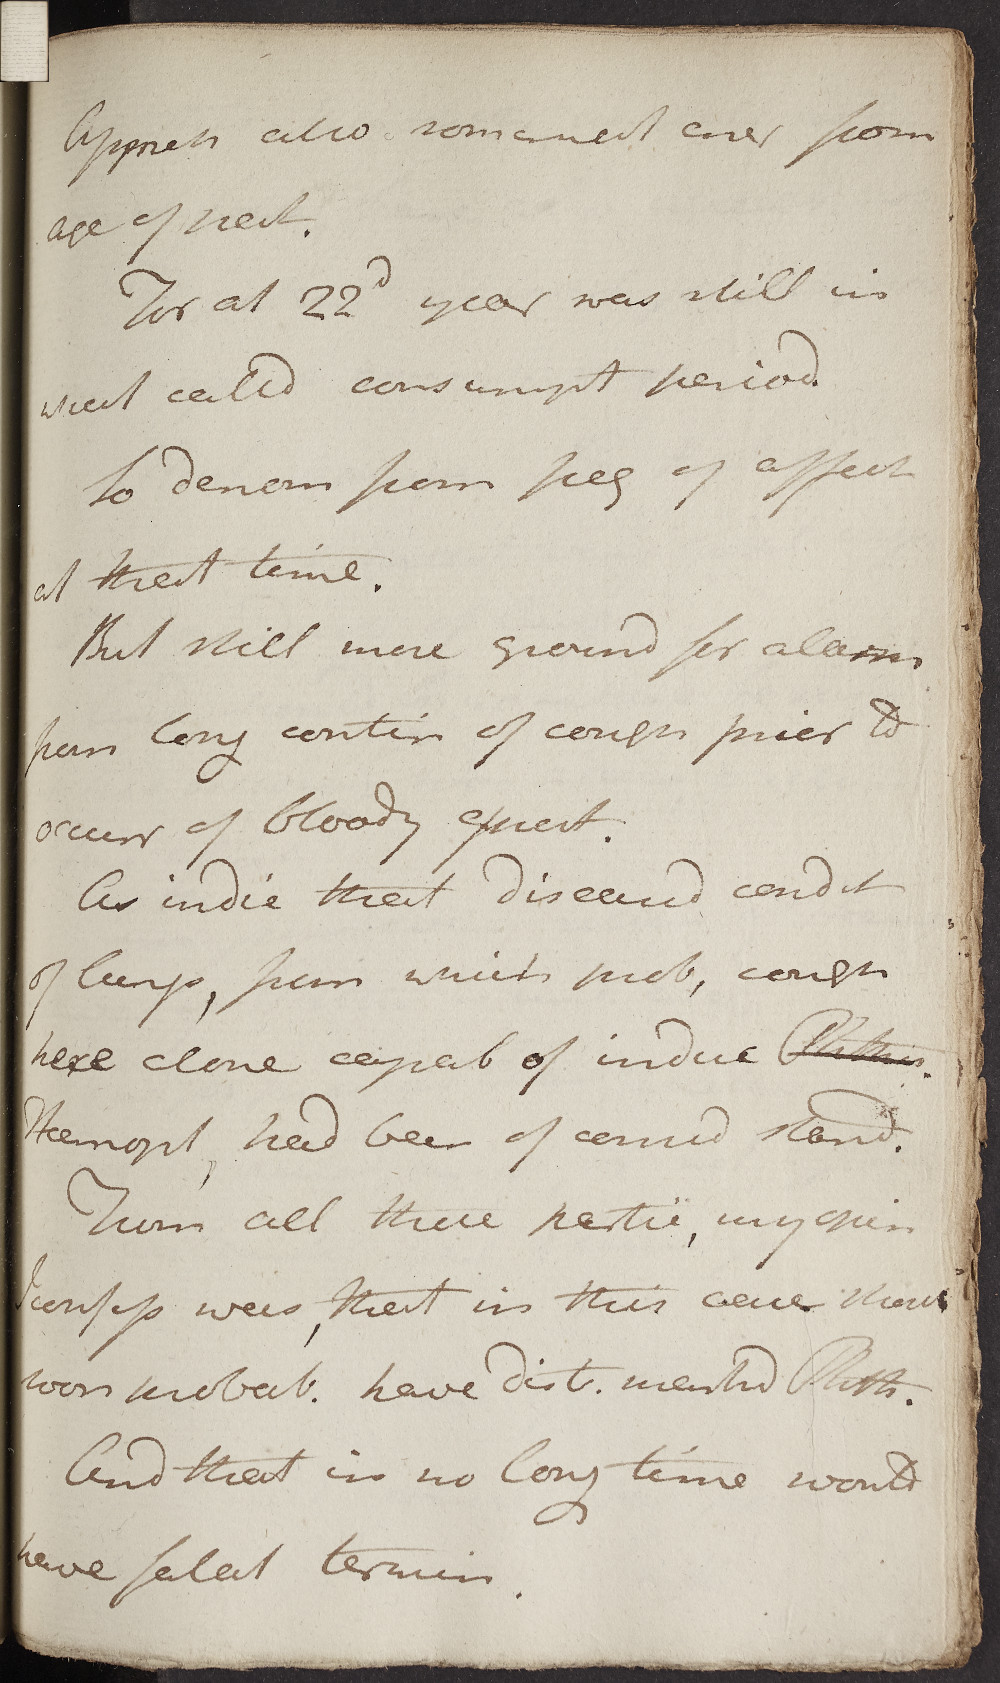 Appreh also somewhat aver from
age of pat.
For at 22d year was still in
what calld consumpt period
So denom from freq of affect
at that time.
But still more ground for alarm
from long contin of cough prior to
occurr of bloody expect.
As indic that diseased condit
of lungs, from which prob, cough
here alone capab of induc Phthis.
Haemopt, had been of consid stand.
From all these partic, my opin
I confess was, that in this case should
soon probab. have dist. markd Phth.
And that in no long time would
have fatal termin.